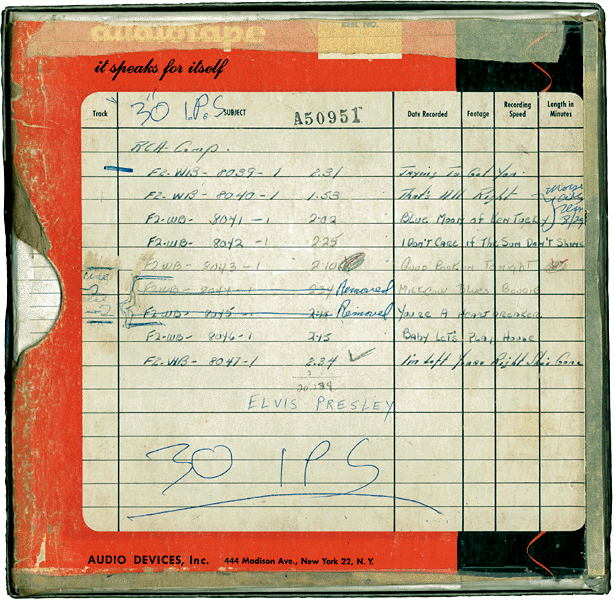 audiotape
REEL NO.
it speaks for itself
Track 30 I.P.S SUBJECT A50951 Date Recorded Footage Recording Speed Length in Minutes
RCA Comp.
F2-WB- 8039-1 2.31 Trying To Get You
F2-WB- 8040-1 1.53 That's All Right
F2-WB- 8041-1 2:02 Blue Moon of Kentucky
F2-WB- 8042-1 2:25 I Don't Care if The Sun Don't Shine
F2-WB- 8043-1 2:10 Good Rockin Tonight
F2-WB- 8044-1 Removed Milkcow Blues Boogie
F2-WB- 8045-1 Removed You're A Heartbreaker
F2-WB- 8046-1 2:15 Baby Let's Play House
F2-WB- 8047-1 2.34 I'm Left Youre Right She's Gone
ELVIS PRESLEY
30 IPS
AUDIO DEVICES, Inc. 444 Madison Ave., New York 22, N. Y.